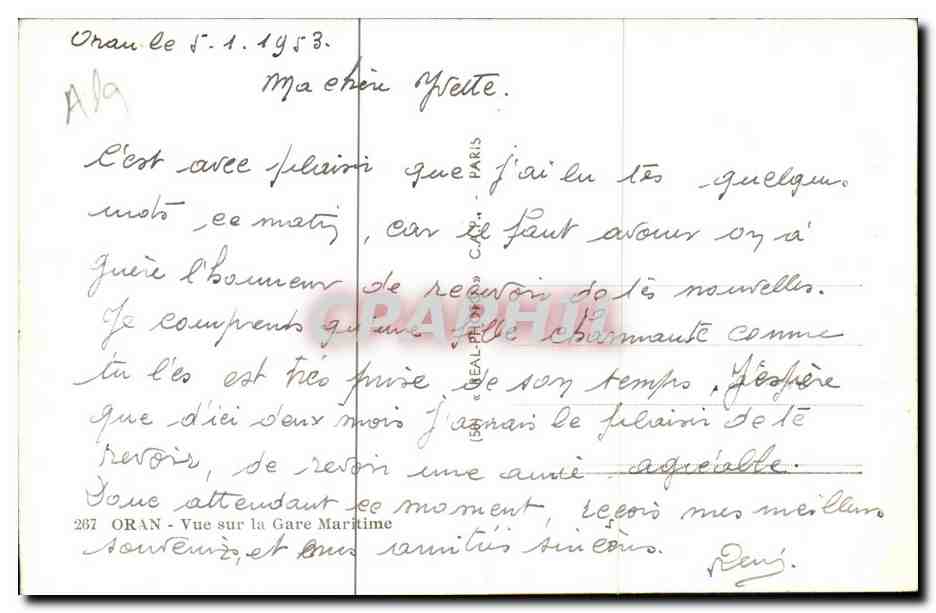 Oran le 5.1.1953.
Ma chère Yvette.
Alg
C'est avec plaisir que j'ai lu tes quelques
mots ce matin, car il faut avouer on a
guère l'honneur de recevoir de tes nouvelles.
Je comprends qu'une fille charmante comme
tu l'es est très prise de son temps. J'espère
que d'ici deux mois j'aurais le plaisir de te
revoir, de revoir une amie agréable.
Donc attendant ce moment, reçois mes meilleurs
267 ORAN - Vue sur la Gare Maritime
souvenirs, et mes amitiés sincères.
René.
« REAL-PHOTO » C.A.P. - PARIS
CPARPHIL